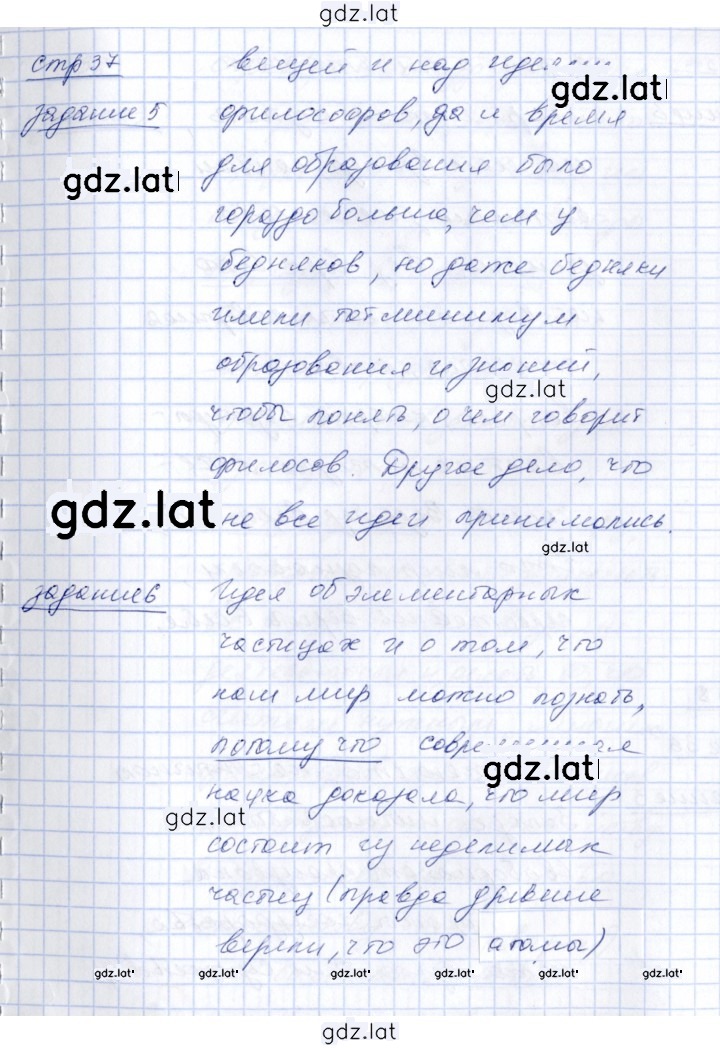 gdz.lat
стр 37 вещей и над
gdz.lat
задание 5 философов, да и время
gdz.lat
для образования было
гораздо больше, чем у
бедняков, но даже бедняки
имели тот минимум
образования и знаний,
gdz.lat
чтобы понять, о чем говорит
филосов. Другое дело, что
gdz.lat
не все идеи принимались.
gdz.lat
задание 6 Идея об элементарных
частицах и о том, что
нам мир можно познать,
потому что
gdz.lat
наука доказала, что мир
gdz.lat
состоит из неделимых
частиц (правда древние
верили, что это атомы)
gdz.lat gdz.lat gdz.lat gdz.lat gdz.lat gdz.lat
gdz.lat